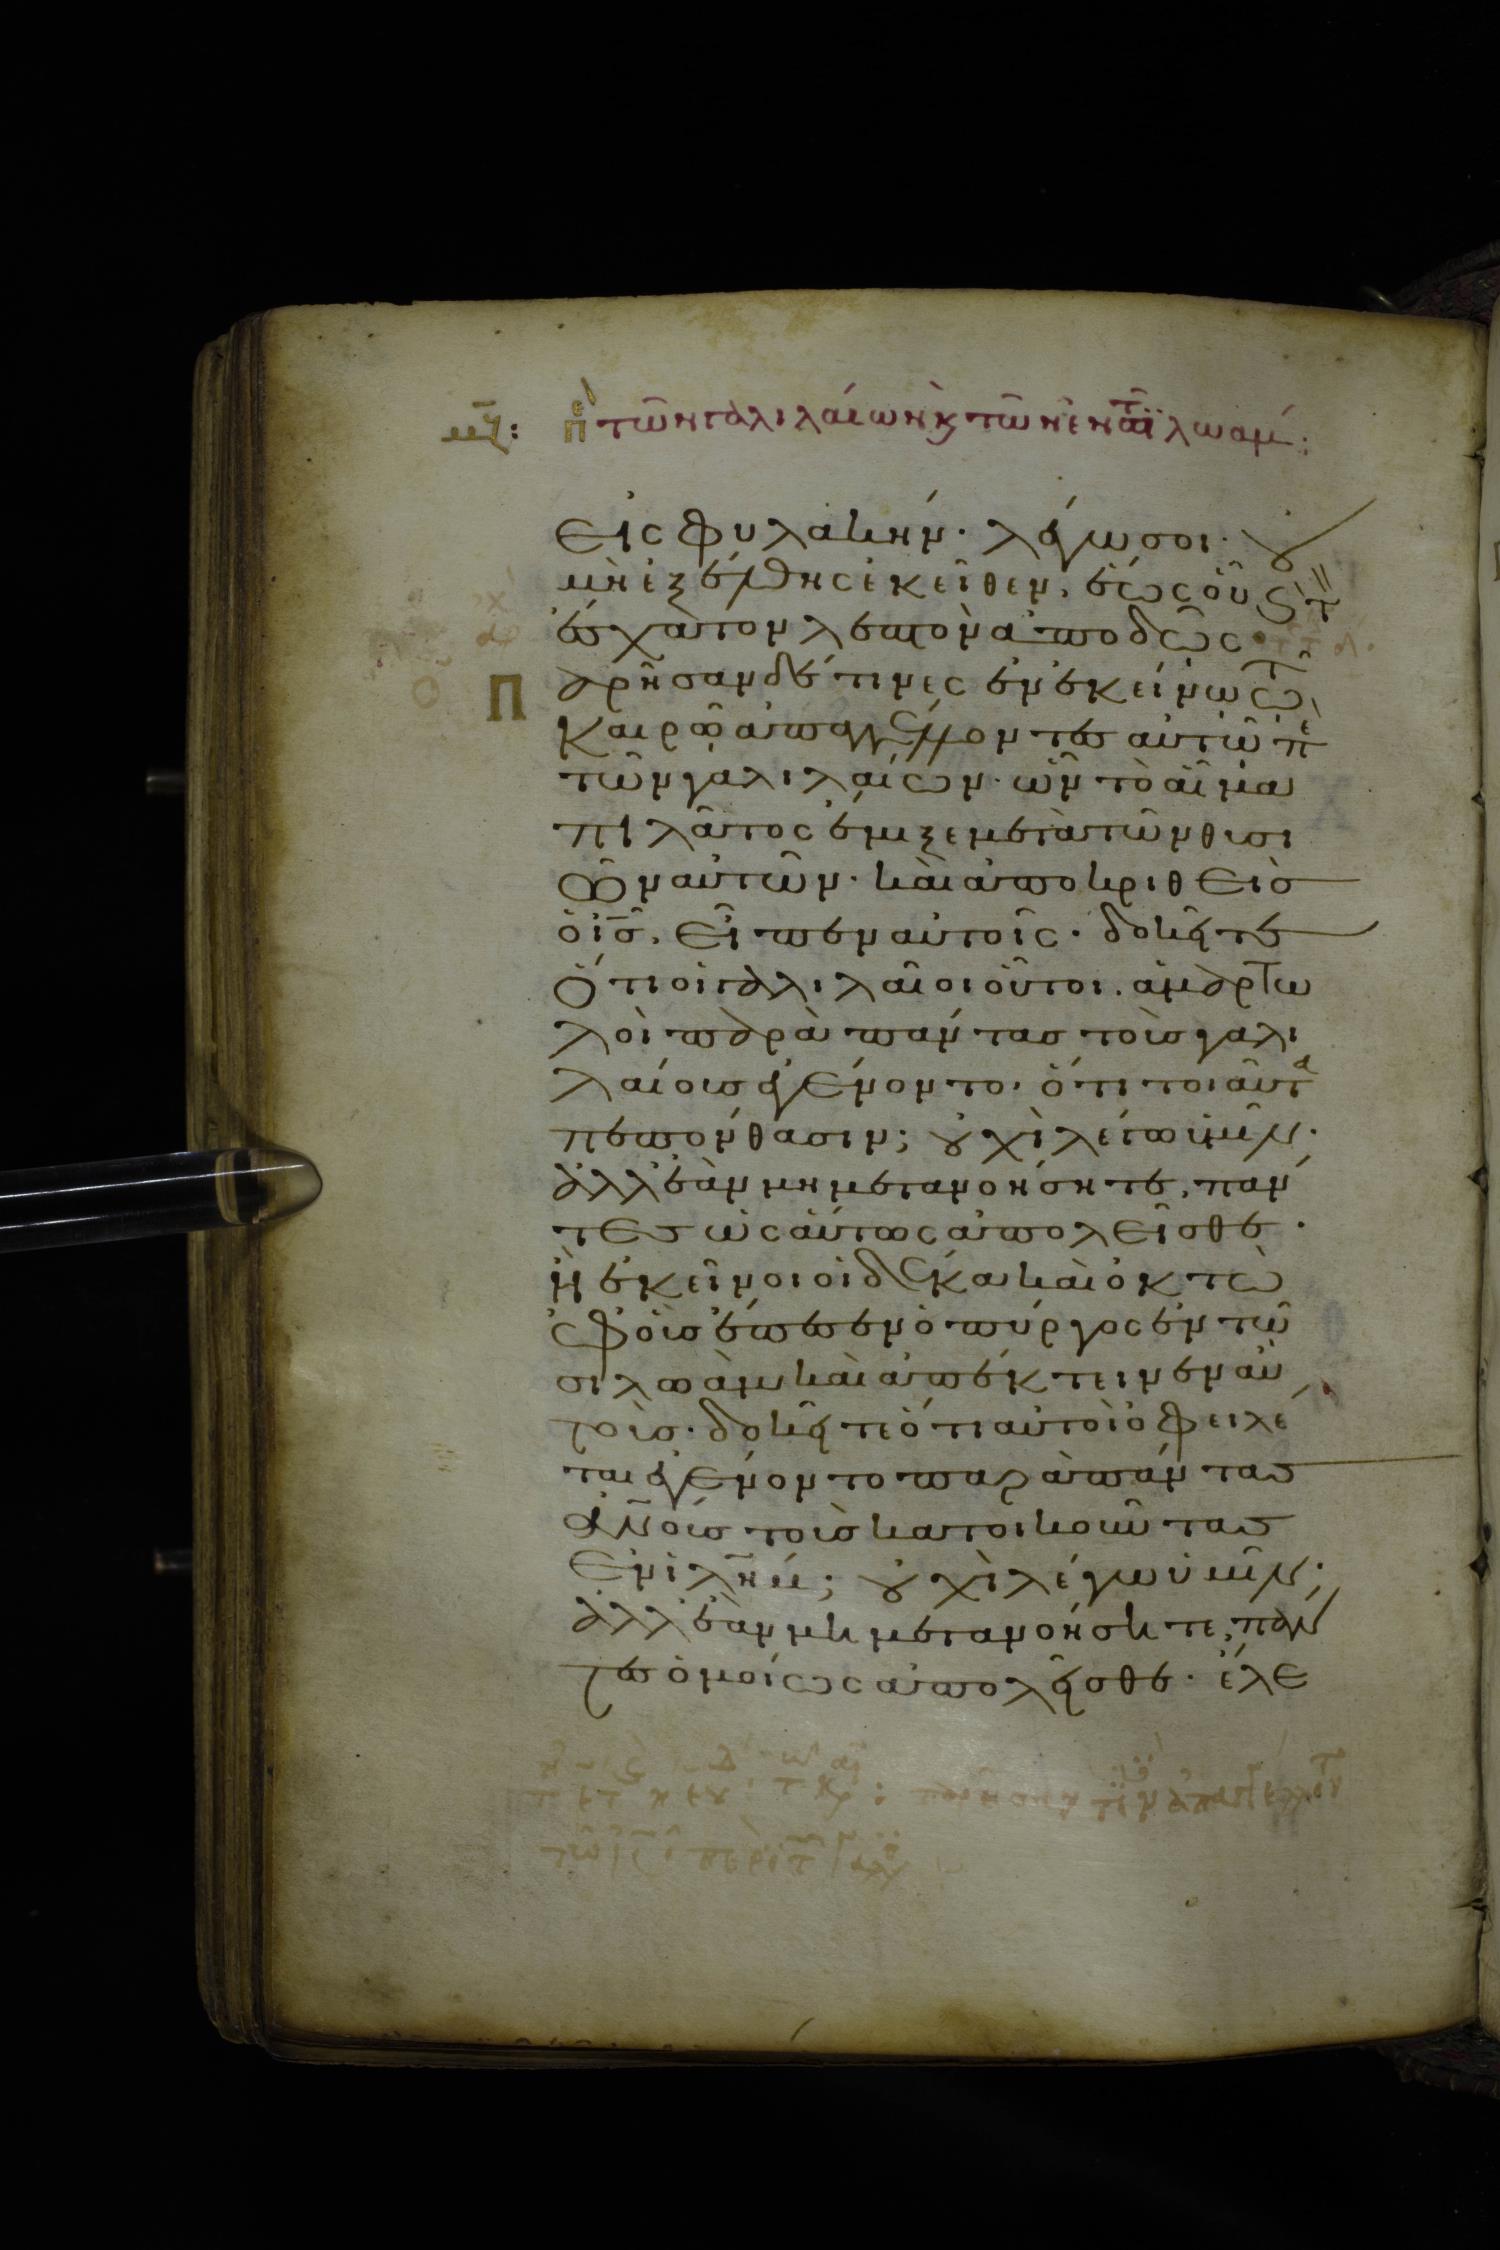 μζ: πε τῶν γαλιλαίων κ τῶν ἐν τῶ σιλωάμ:
εἰς φυλακήν· λέγω σοι· οὐ
μὴ ἐξέλθης ἐκεῖθεν, ἕως οὗ κ τ
ἔσχατον λεπτὸν ἀποδῶς·
Παρῆσαν δέ τινες ἐν ἐκείνω τῶ
καιρῶ ἀπαγγέλλοντες αὐτῶ πε
τῶν γαλιλαίων· ὧν τὸ αἷμα
πιλᾶτος ἔμιξε μετὰ τῶν θυσι
ῶν αὐτῶν· καὶ ἀποκριθεὶς
ὁ ις, εἶπεν αὐτοῖς· δοκεῖτε
ὅτι οἱ γαλιλαῖοι οὗτοι. ἁμαρτω
λοὶ παρὰ πάντας τοὺς γαλι
λαίους ἐγένοντο, ὅτι τοιαῦτα
πεπόνθασιν; οὐχὶ λέγω ὑμῖν·
ἀλλ' ἐὰν μὴ μετανοήσητε, πάν
τες ὡσαύτως ἀπολεῖσθε·
ἢ ἐκεῖνοι οἱ δέκα καὶ ὀκτὼ
ἐφ' οὓς ἔπεσεν ὁ πύργος ἐν τῶ
σιλωὰμ καὶ ἀπέκτεινεν αὐ
τούς· δοκεῖτε ὅτι αὐτοὶ ὀφειλέ
ται ἐγένοντο παρὰ πάντας
ἀνους τοὺς κατοικοῦντας
ἐν ἱλημ; οὐχὶ λέγω ὑμῖν·
ἀλλ' ἐὰν μὴ μετανοήσητε, πάν
τες ὁμοίως ἀπολεῖσθε· ἔλε